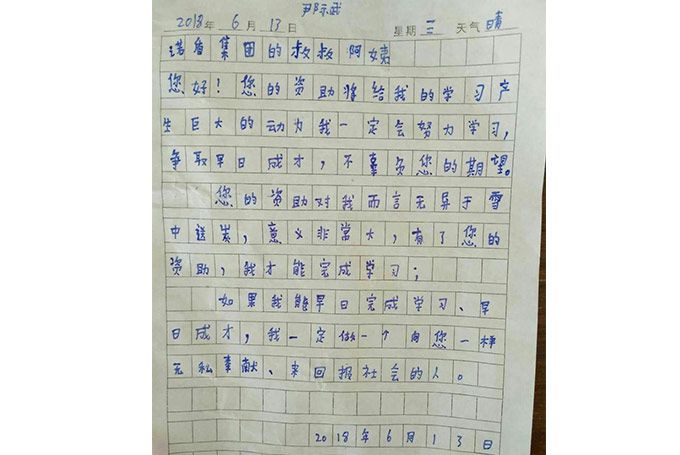 尹际武
2018年6月13日 星期三 天气晴
诺盾集团的叔叔阿姨
您好！您的资助将给我的学习产
生巨大的动力为我一定会努力学习，
争取早日成才，不辜负您的期望。
您的资助对我而言无异于雪
中送炭，意义非常大，有了您的
资助，我才能完成学习；
如果我能早日完成学习、早
日成才，我一定做一个向您一样
无私奉献、来回报社会的人。
2018年6月13日